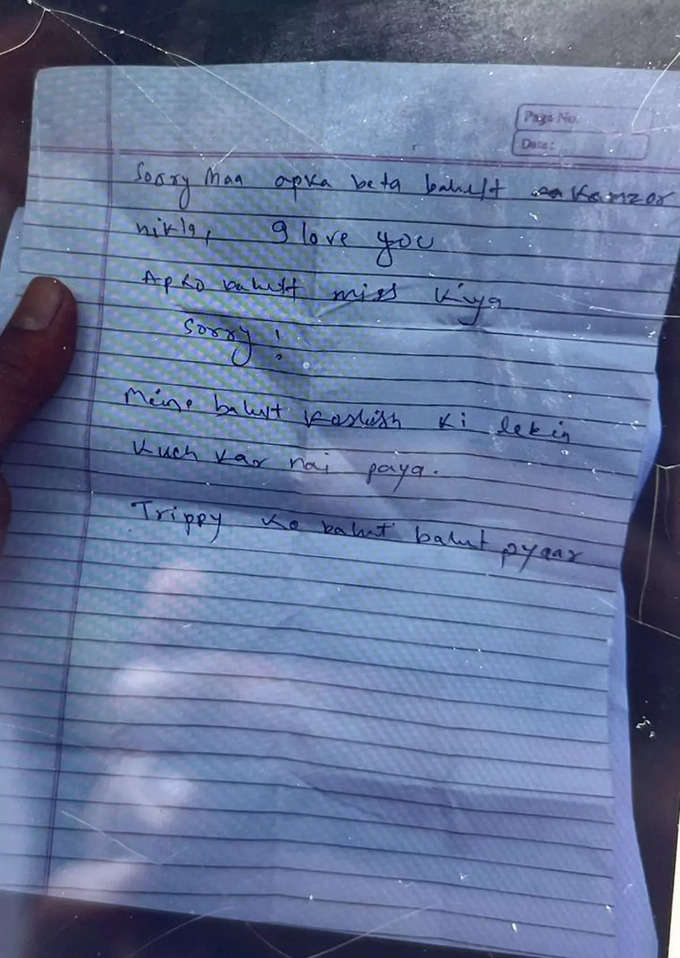 Page No.
Date:
Sorry Maa apka beta bahut kamzor
nikla, I love you
Apko bahut miss kiya
Sorry!
Meine bahut koshish ki lekin
kuch kar nai paya.
Trippy ko bahut bahut pyaar